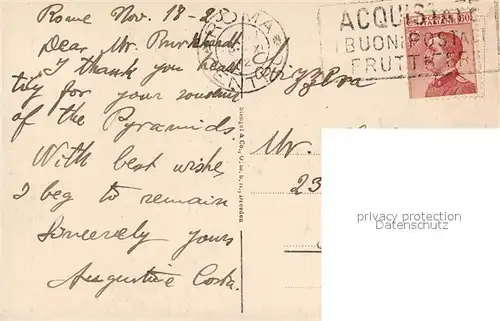 Rome Nov. 18-2
Dear Mr. Burkhardt,
I thank you hear
tily for your souvenir
of the Pyramids.
With best wishes
I beg to remain
Sincerely yours
Augustine Costa.
ROMA
ACQUISTATE
I BUONI POSTALI
FRUTTIFERI
60
Svizzera
Mr.
23
Stengel & Co., G.m.b.H., Dresden
privacy protection
Datenschutz